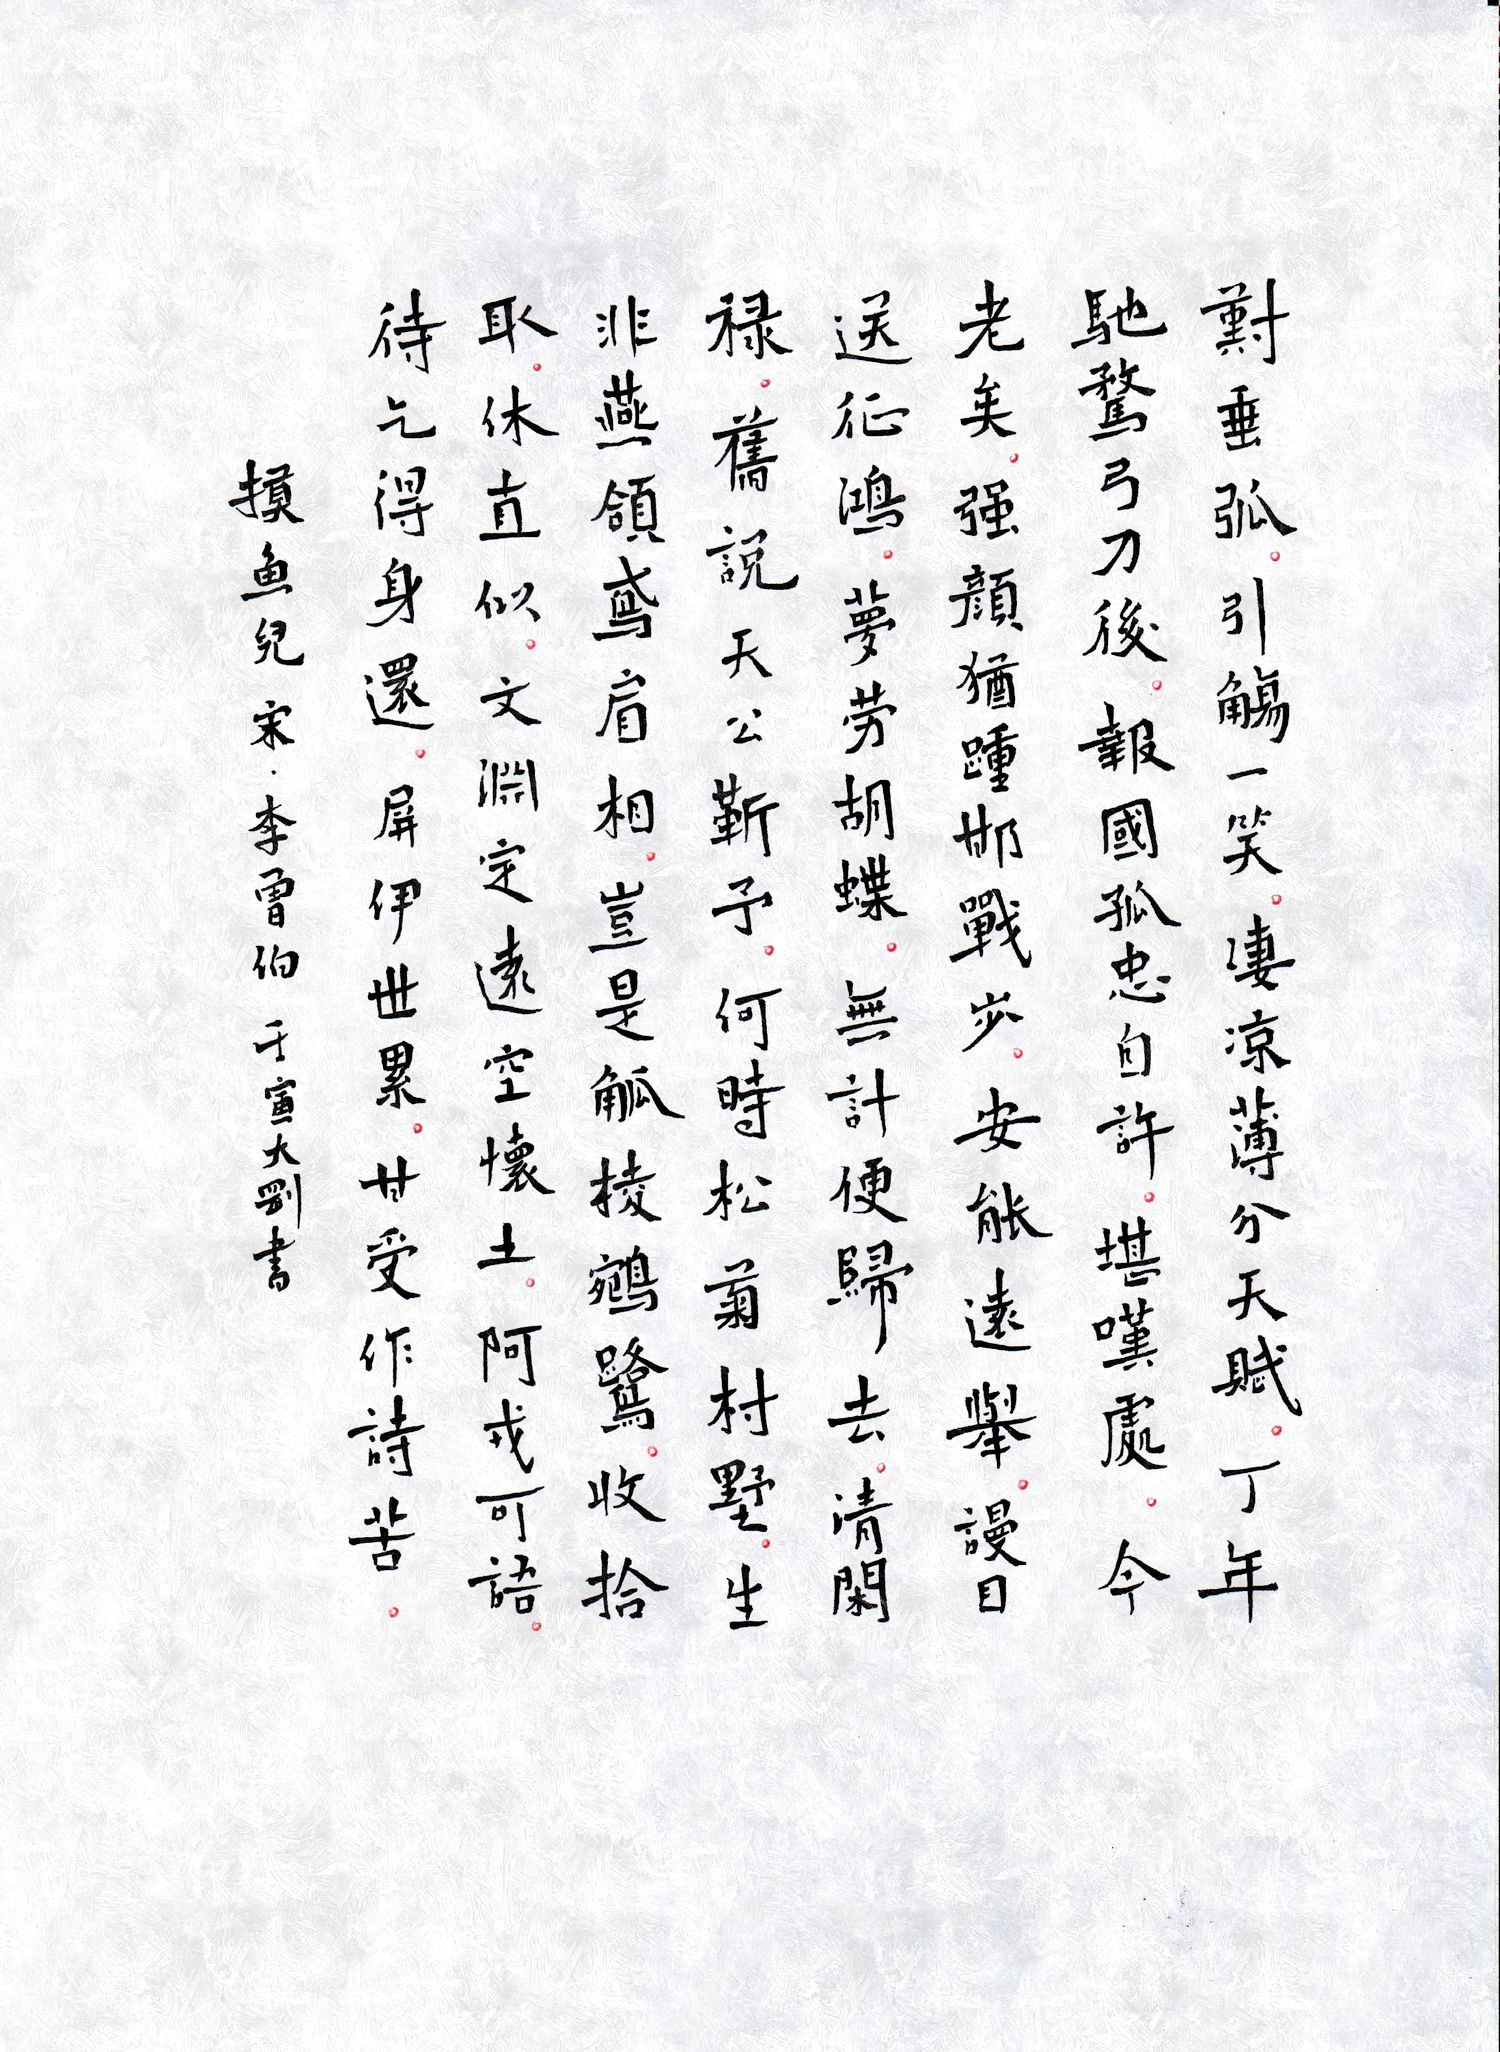 對垂弧。引觴一笑。淒涼薄分天賦。丁年
馳騖弓刀後。報國孤忠自許。堪嘆處。今
老矣。强顏猶踵邯戰步。安能遠舉。謾目
送征鴻。夢勞胡蝶。無計便歸去。清閑
禄。舊說天公靳予。何時松菊村墅。生
非燕頷鳶肩相。豈是觚棱鵷鷺。收拾
取。休直似。文淵定遠空懷土。阿戎可語。
待乞得身還。屏伊世累。甘受作詩苦。
摸魚兒 宋·李曾伯 壬寅大剛書